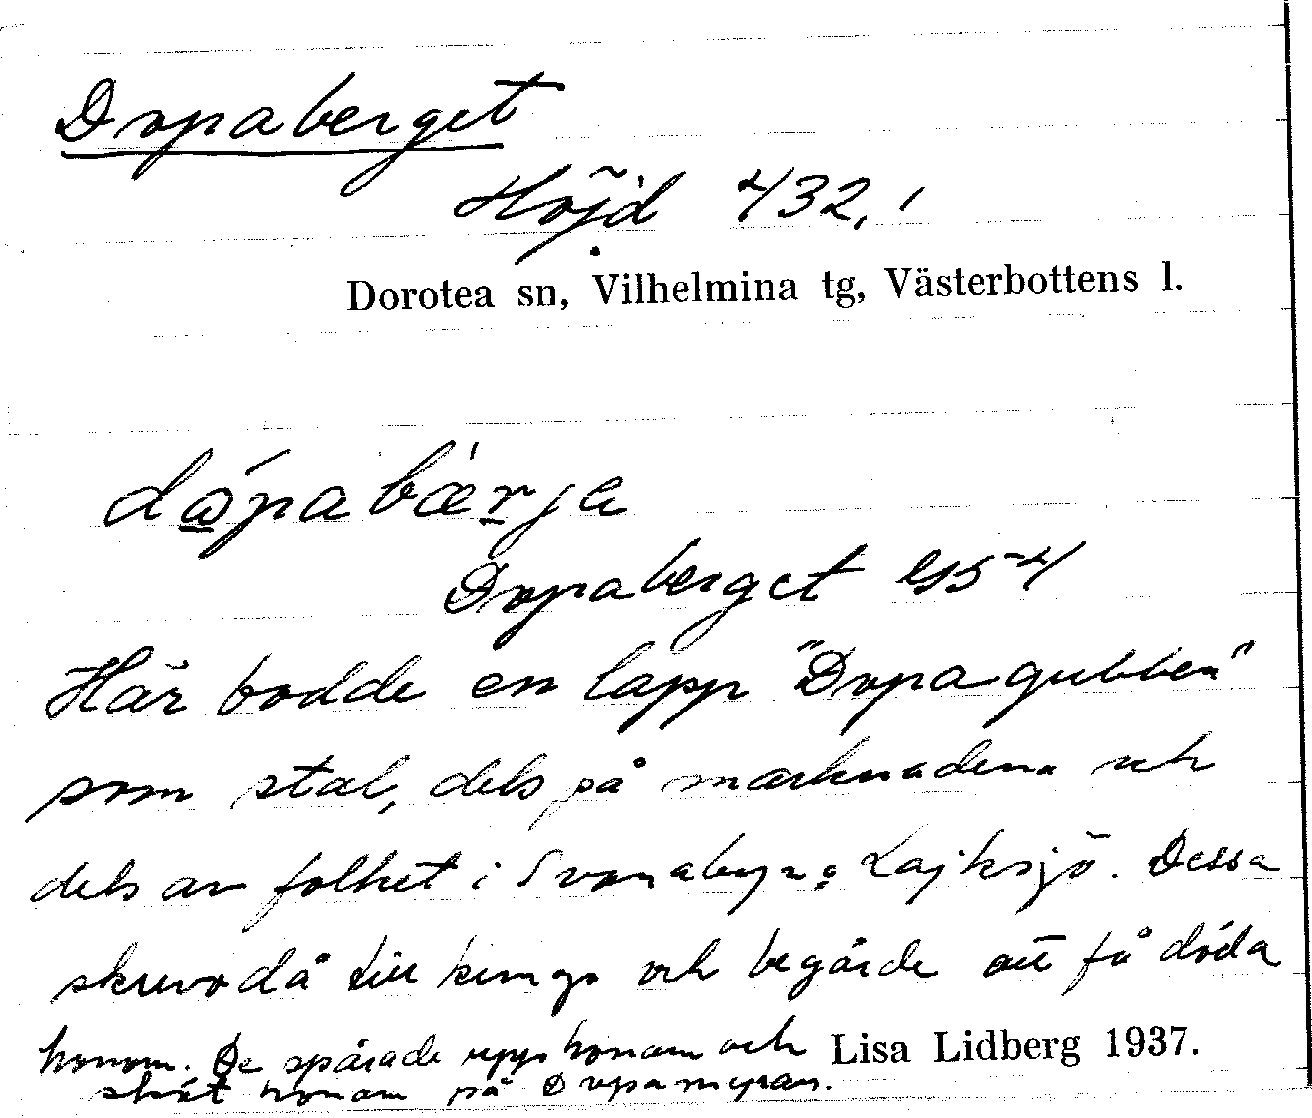 Dopaberget
Höjd 432,1
Dorotea sn, Vilhelmina tg, Västerbottens l.
dåpabærja
Dopaberget
Här bodde en lapp "Dopagubben"
som stal, dels på marknaderna och
dels av folket i Svanabyn o Lajksjö. Dessa
skrevo då till kungs och begärde att få döda
honom. De spårade upp honom och
sköt honom på Dopamyran.
Lisa Lidberg 1937.